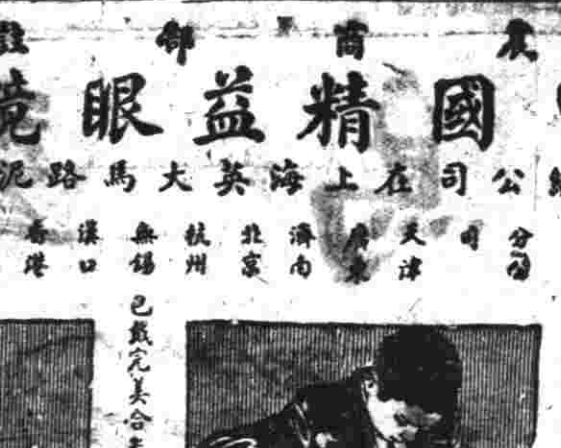 農商部註
國精益眼鏡
總公司在上海英大馬路泥
分公司 天津 廣東 濟南 北京 杭州 無錫 漢口 香港
已戴完美合